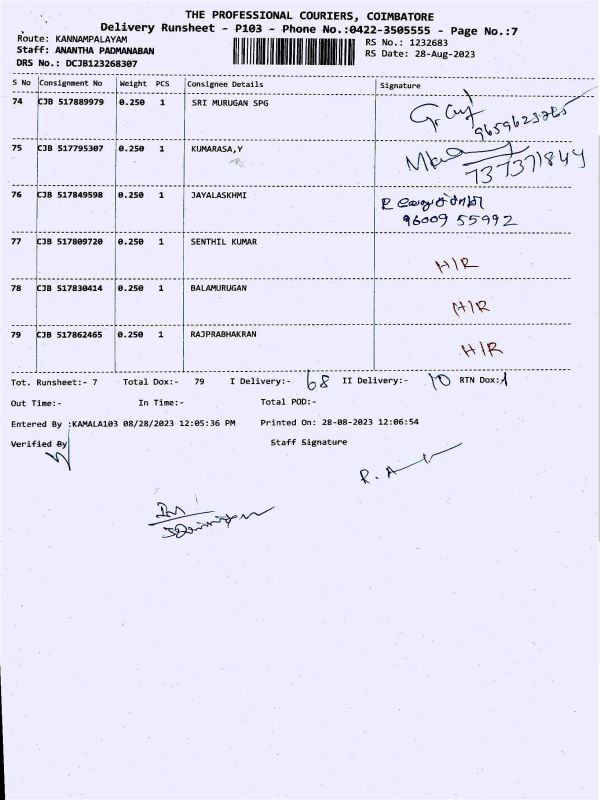 THE PROFESSIONAL COURIERS, COIMBATORE
Delivery Runsheet - P103 - Phone No.:0422-3505555 - Page No.:7
Route: KANNAMPALAYAM
RS No.: 1232683
Staff: ANANTHA PADMANABAN
RS Date: 28-Aug-2023
DRS No.: DCJB123268307
S No Consignment No Weight PCS Consignee Details Signature
74 CJB 517889979 0.250 1 SRI MURUGAN SPG
75 CJB 517795307 0.250 1 KUMARASA,Y
737371844
76 CJB 517849598 0.250 1 JAYALASKHMI
96009 55992
77 CJB 517809720 0.250 1 SENTHIL KUMAR
H/R
78 CJB 517830414 0.250 1 BALAMURUGAN
H/R
79 CJB 517862465 0.250 1 RAJPRABHAKRAN
H/R
Tot. Runsheet:- 7 Total Dox:- 79 I Delivery:- 68 II Delivery:- 10 RTN Dox:1
Out Time:- In Time:- Total POD:-
Entered By :KAMALA103 08/28/2023 12:05:36 PM Printed On: 28-08-2023 12:06:54
Verified By Staff Signature
R. A